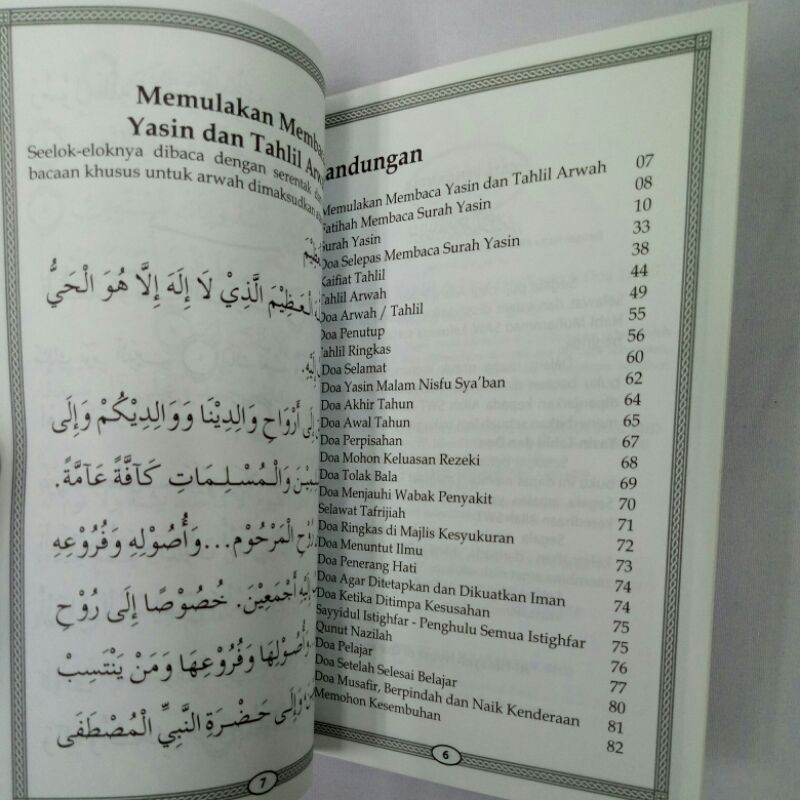 Memulakan Membaca
Yasin dan Tahlil Arwah
Seelok-eloknya dibaca dengan serentak
bacaan khusus untuk arwah dimaksudkan
الْعَظِيْمَ الَّذِيْ لَا إِلَهَ إِلَّا هُوَ الْحَيُّ
إِلَيْهِ.
إِلَى أَرْوَاحِ وَالِدِيْنَا وَوَالِدِيْكُمْ وَإِلَى
وَالْمُسْلِمَاتِ كَآفَّةً عَآمَّةً.
رُوْحِ الْمَرْحُوْمِ...وَأُصُوْلِهِ وَفُرُوْعِهِ
أَجْمَعِيْنَ. خُصُوْصًا إِلَى رُوْحِ
وَأُصُوْلِهَا وَفُرُوْعِهَا وَمَنْ يَنْتَسِبُ
وَإِلَى حَضْرَةِ النَّبِيِّ الْمُصْطَفَى
7
andungan
Memulakan Membaca Yasin dan Tahlil Arwah 07
Fatihah Membaca Surah Yasin 08
Surah Yasin 10
Doa Selepas Membaca Surah Yasin 33
Kaifiat Tahlil 38
Tahlil Arwah 44
Doa Arwah / Tahlil 49
Doa Penutup 55
Tahlil Ringkas 56
Doa Selamat 60
Doa Yasin Malam Nisfu Sya'ban 62
Doa Akhir Tahun 64
Doa Awal Tahun 65
Doa Perpisahan 67
Doa Mohon Keluasan Rezeki 68
Doa Tolak Bala 69
Doa Menjauhi Wabak Penyakit 70
Selawat Tafrijiah 71
Doa Ringkas di Majlis Kesyukuran 72
Doa Menuntut Ilmu 73
Doa Penerang Hati 74
Doa Agar Ditetapkan dan Dikuatkan Iman 74
Doa Ketika Ditimpa Kesusahan 75
Sayyidul Istighfar - Penghulu Semua Istighfar 75
Qunut Nazilah 76
Doa Pelajar 77
Doa Setelah Selesai Belajar 80
Doa Musafir, Berpindah dan Naik Kenderaan 81
Memohon Kesembuhan 82
6